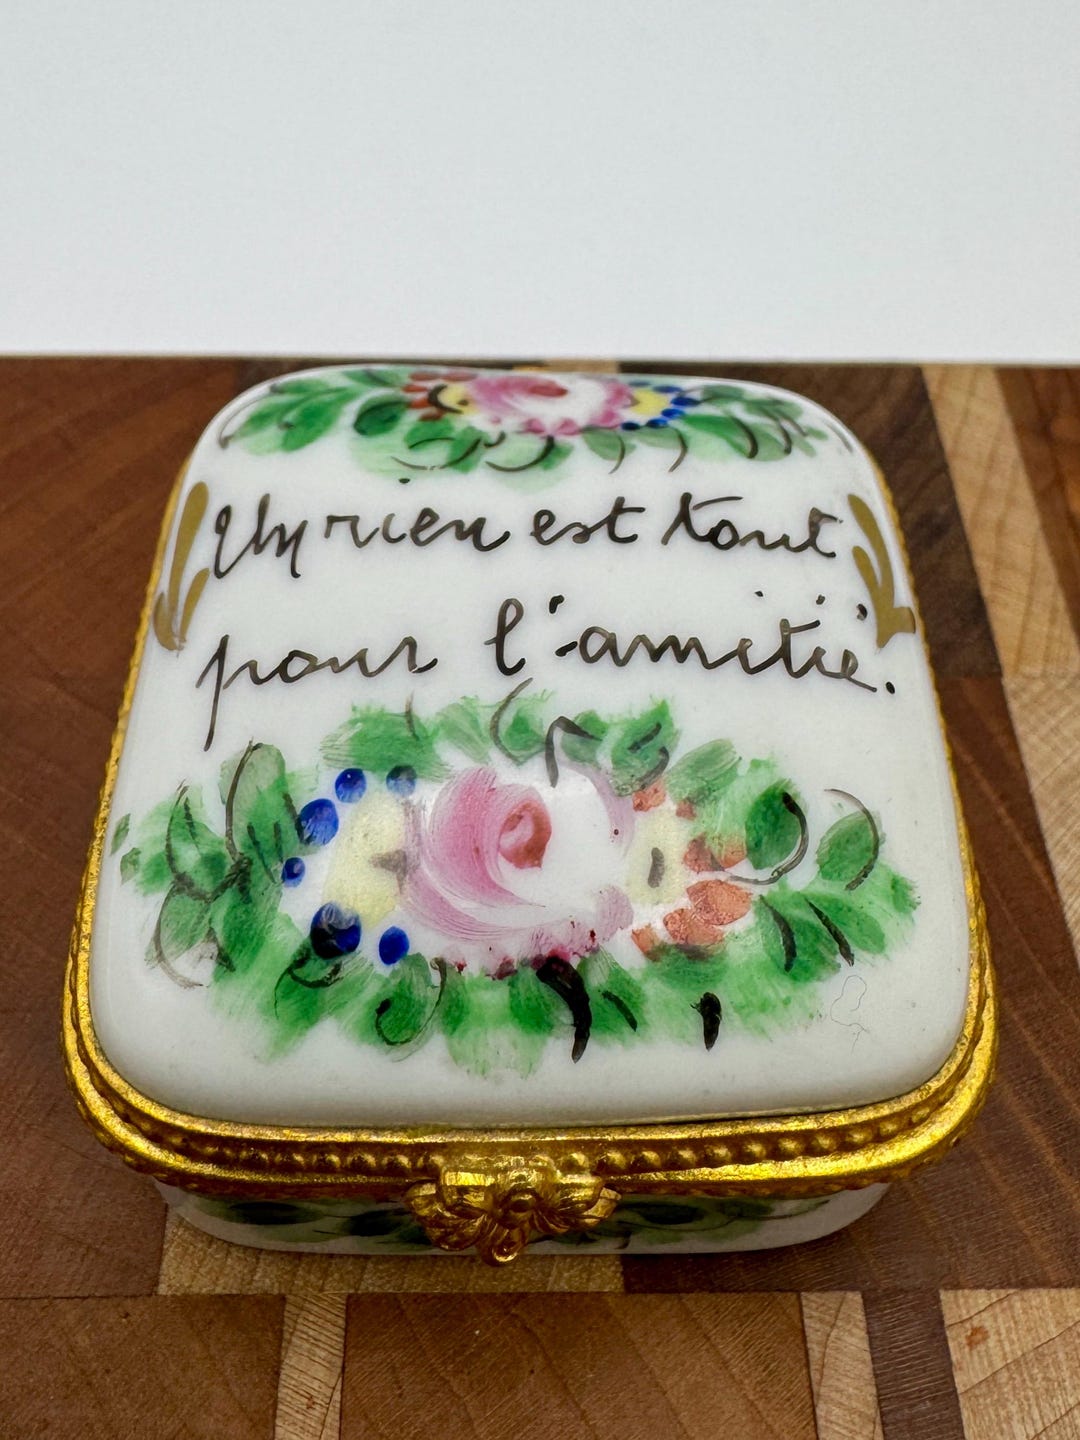 Un rien est tout
pour l'amitié.